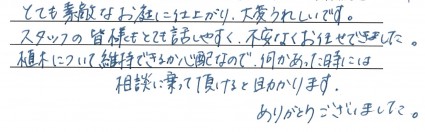 とても素敵なお庭に仕上がり、大変うれしいです。
スタッフの皆様もとても話しやすく、不安なくお任せできました。
植木について維持できるか心配なので、何かあった時には
相談に乗って頂けると助かります。
ありがとうございました。